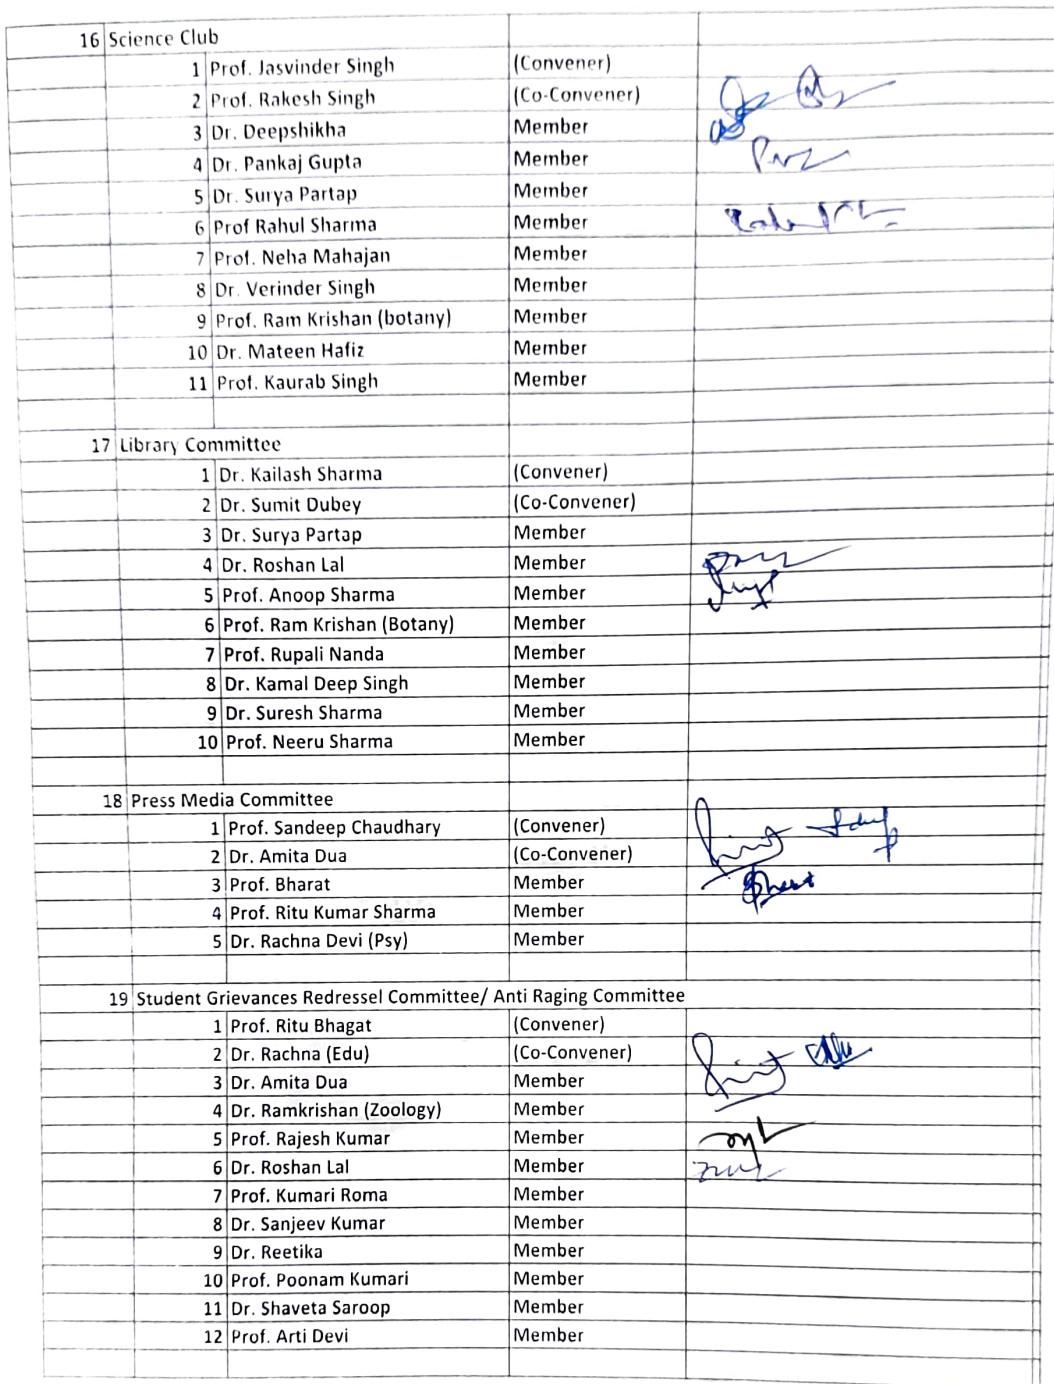 16 Science Club
1 Prof. Jasvinder Singh (Convener)
2 Prof. Rakesh Singh (Co-Convener)
3 Dr. Deepshikha Member
4 Dr. Pankaj Gupta Member
5 Dr. Surya Partap Member
6 Prof Rahul Sharma Member
7 Prof. Neha Mahajan Member
8 Dr. Verinder Singh Member
9 Prof. Ram Krishan (botany) Member
10 Dr. Mateen Hafiz Member
11 Prof. Kaurab Singh Member
17 Library Committee
1 Dr. Kailash Sharma (Convener)
2 Dr. Sumit Dubey (Co-Convener)
3 Dr. Surya Partap Member
4 Dr. Roshan Lal Member
5 Prof. Anoop Sharma Member
6 Prof. Ram Krishan (Botany) Member
7 Prof. Rupali Nanda Member
8 Dr. Kamal Deep Singh Member
9 Dr. Suresh Sharma Member
10 Prof. Neeru Sharma Member
18 Press Media Committee
1 Prof. Sandeep Chaudhary (Convener)
2 Dr. Amita Dua (Co-Convener)
3 Prof. Bharat Member
4 Prof. Ritu Kumar Sharma Member
5 Dr. Rachna Devi (Psy) Member
19 Student Grievances Redressel Committee/ Anti Raging Committee
1 Prof. Ritu Bhagat (Convener)
2 Dr. Rachna (Edu) (Co-Convener)
3 Dr. Amita Dua Member
4 Dr. Ramkrishan (Zoology) Member
5 Prof. Rajesh Kumar Member
6 Dr. Roshan Lal Member
7 Prof. Kumari Roma Member
8 Dr. Sanjeev Kumar Member
9 Dr. Reetika Member
10 Prof. Poonam Kumari Member
11 Dr. Shaveta Saroop Member
12 Prof. Arti Devi Member